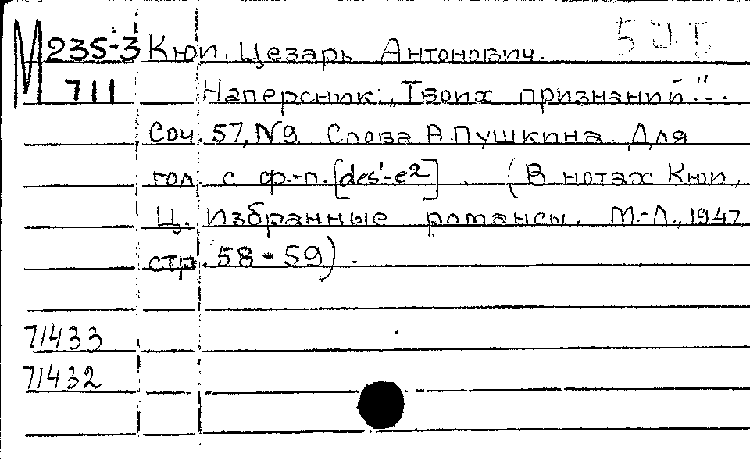 М 235-3 Кюи, Цезарь Антонович.
711 Наперсник „Твоих признаний"...
Соч. 57, №9. Слова А.Пушкина. Для
гол. с ф.-п. [des'-e²]. (В нотах Кюи,
Ц. Избранные романсы. М.-Л., 1947
стр. 58-59).
71433
71432